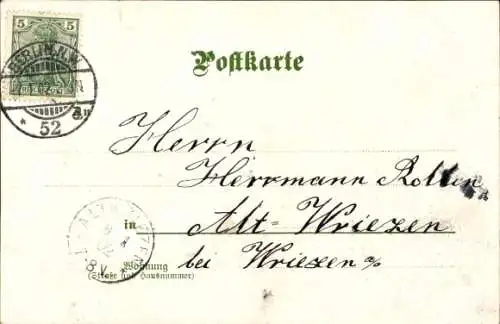 5 5
BERLIN N.W.
* 52
Postkarte
An
Herrn
Herrmann
in Alt-Wriezen
bei Wriezen a/o
Wohnung
(Straße und Hausnummer)